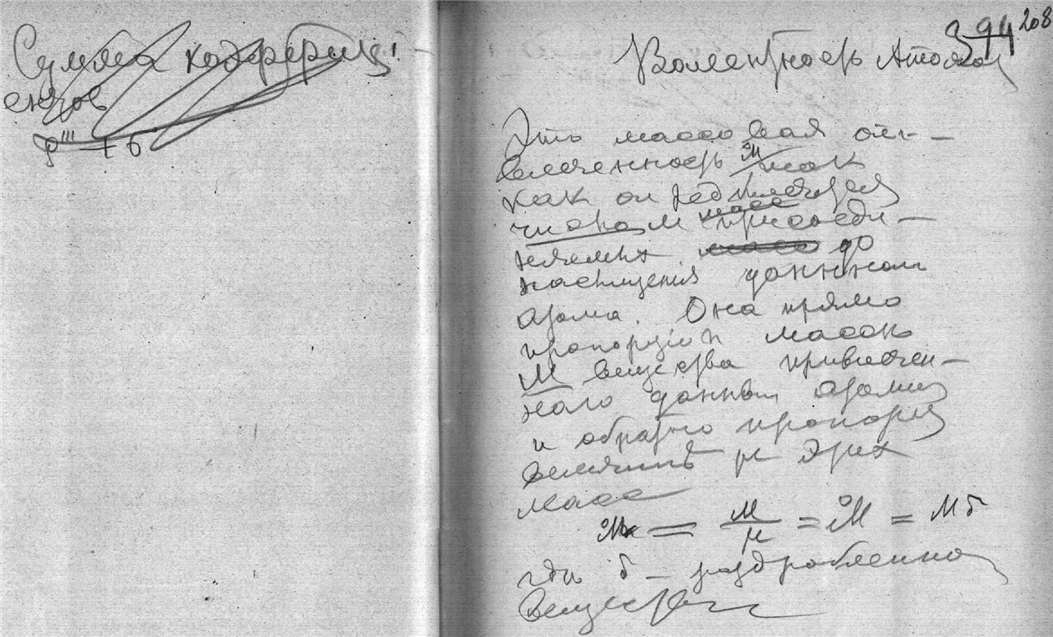 Сумма коэффици-
ентов
394 208
Валентность Атомов
Это массовая от-
влеченность M так
как он
числом масс присоеди-
няемых масс до
насыщения данном
атома. Она прямо
пропорцион массе
M вещества привлечен-
ного данным атомом
и обратно пропорц
величине μ этих
масс
= M/μ = M = Mδ
где δ – раздробленно
вещества